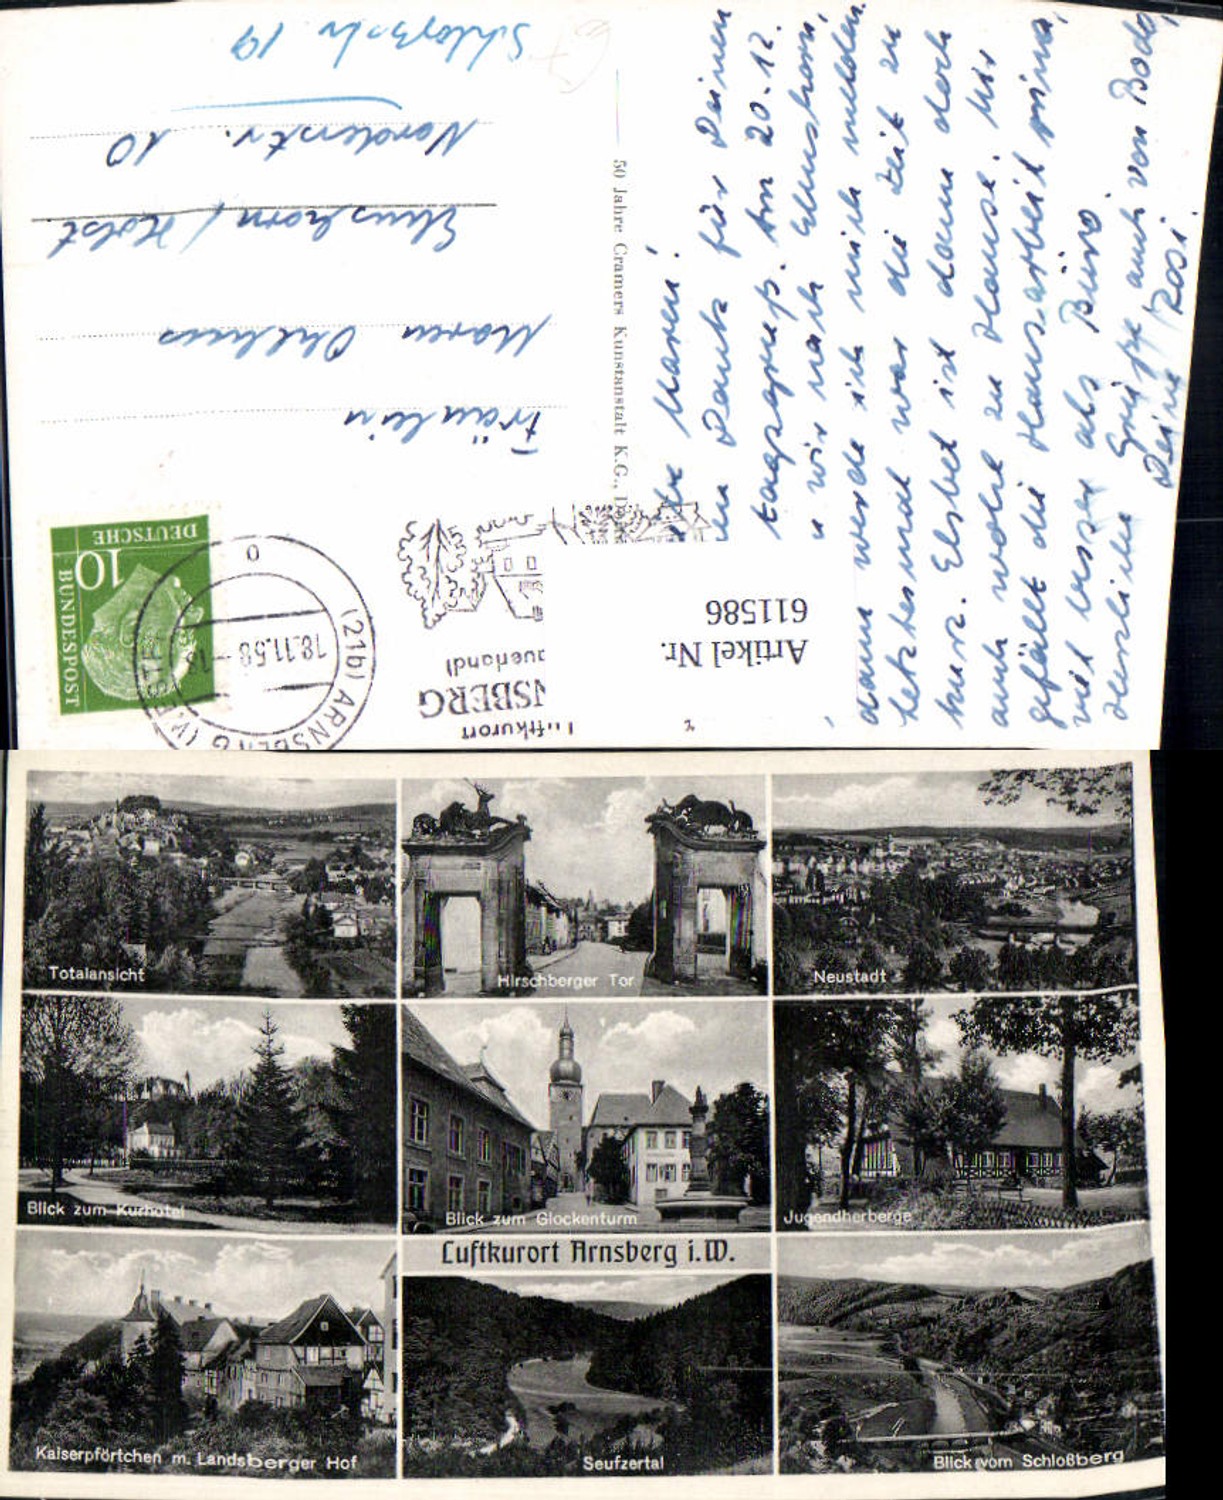 Liebe Maren!
Dank für Deinen
taggruß. Am 20.12.
wir nach Elmshorn,
dann werde ich mich melden.
letztesmal war die Zeit zu
kurz. Elsbet ist dann doch
auch wohl zu Hause. Mir
gefällt die Hausarbeit prima,
viel besser als Büro
Herzliche Grüße auch von Bodo,
Deine Rosi.
50 Jahre Cramers Kunstanstalt K.G., D
Fräulein
Maren
Elmshorn / Holst.
Norderstr. 10
Schloßstr. 19
DEUTSCHE
BUNDESPOST
10
(21b) ARNSBERG (WESTF)
18.11.58
Luftkurort
NSBERG
auerland)
Artikel Nr.
611586
Totalansicht
Hirschberger Tor
Neustadt
Blick zum Kurhotel
Blick zum Glockenturm
Jugendherberge
Luftkurort Arnsberg i.W.
Kaiserpförtchen m. Landsberger Hof
Seufzertal
Blick vom Schloßberg